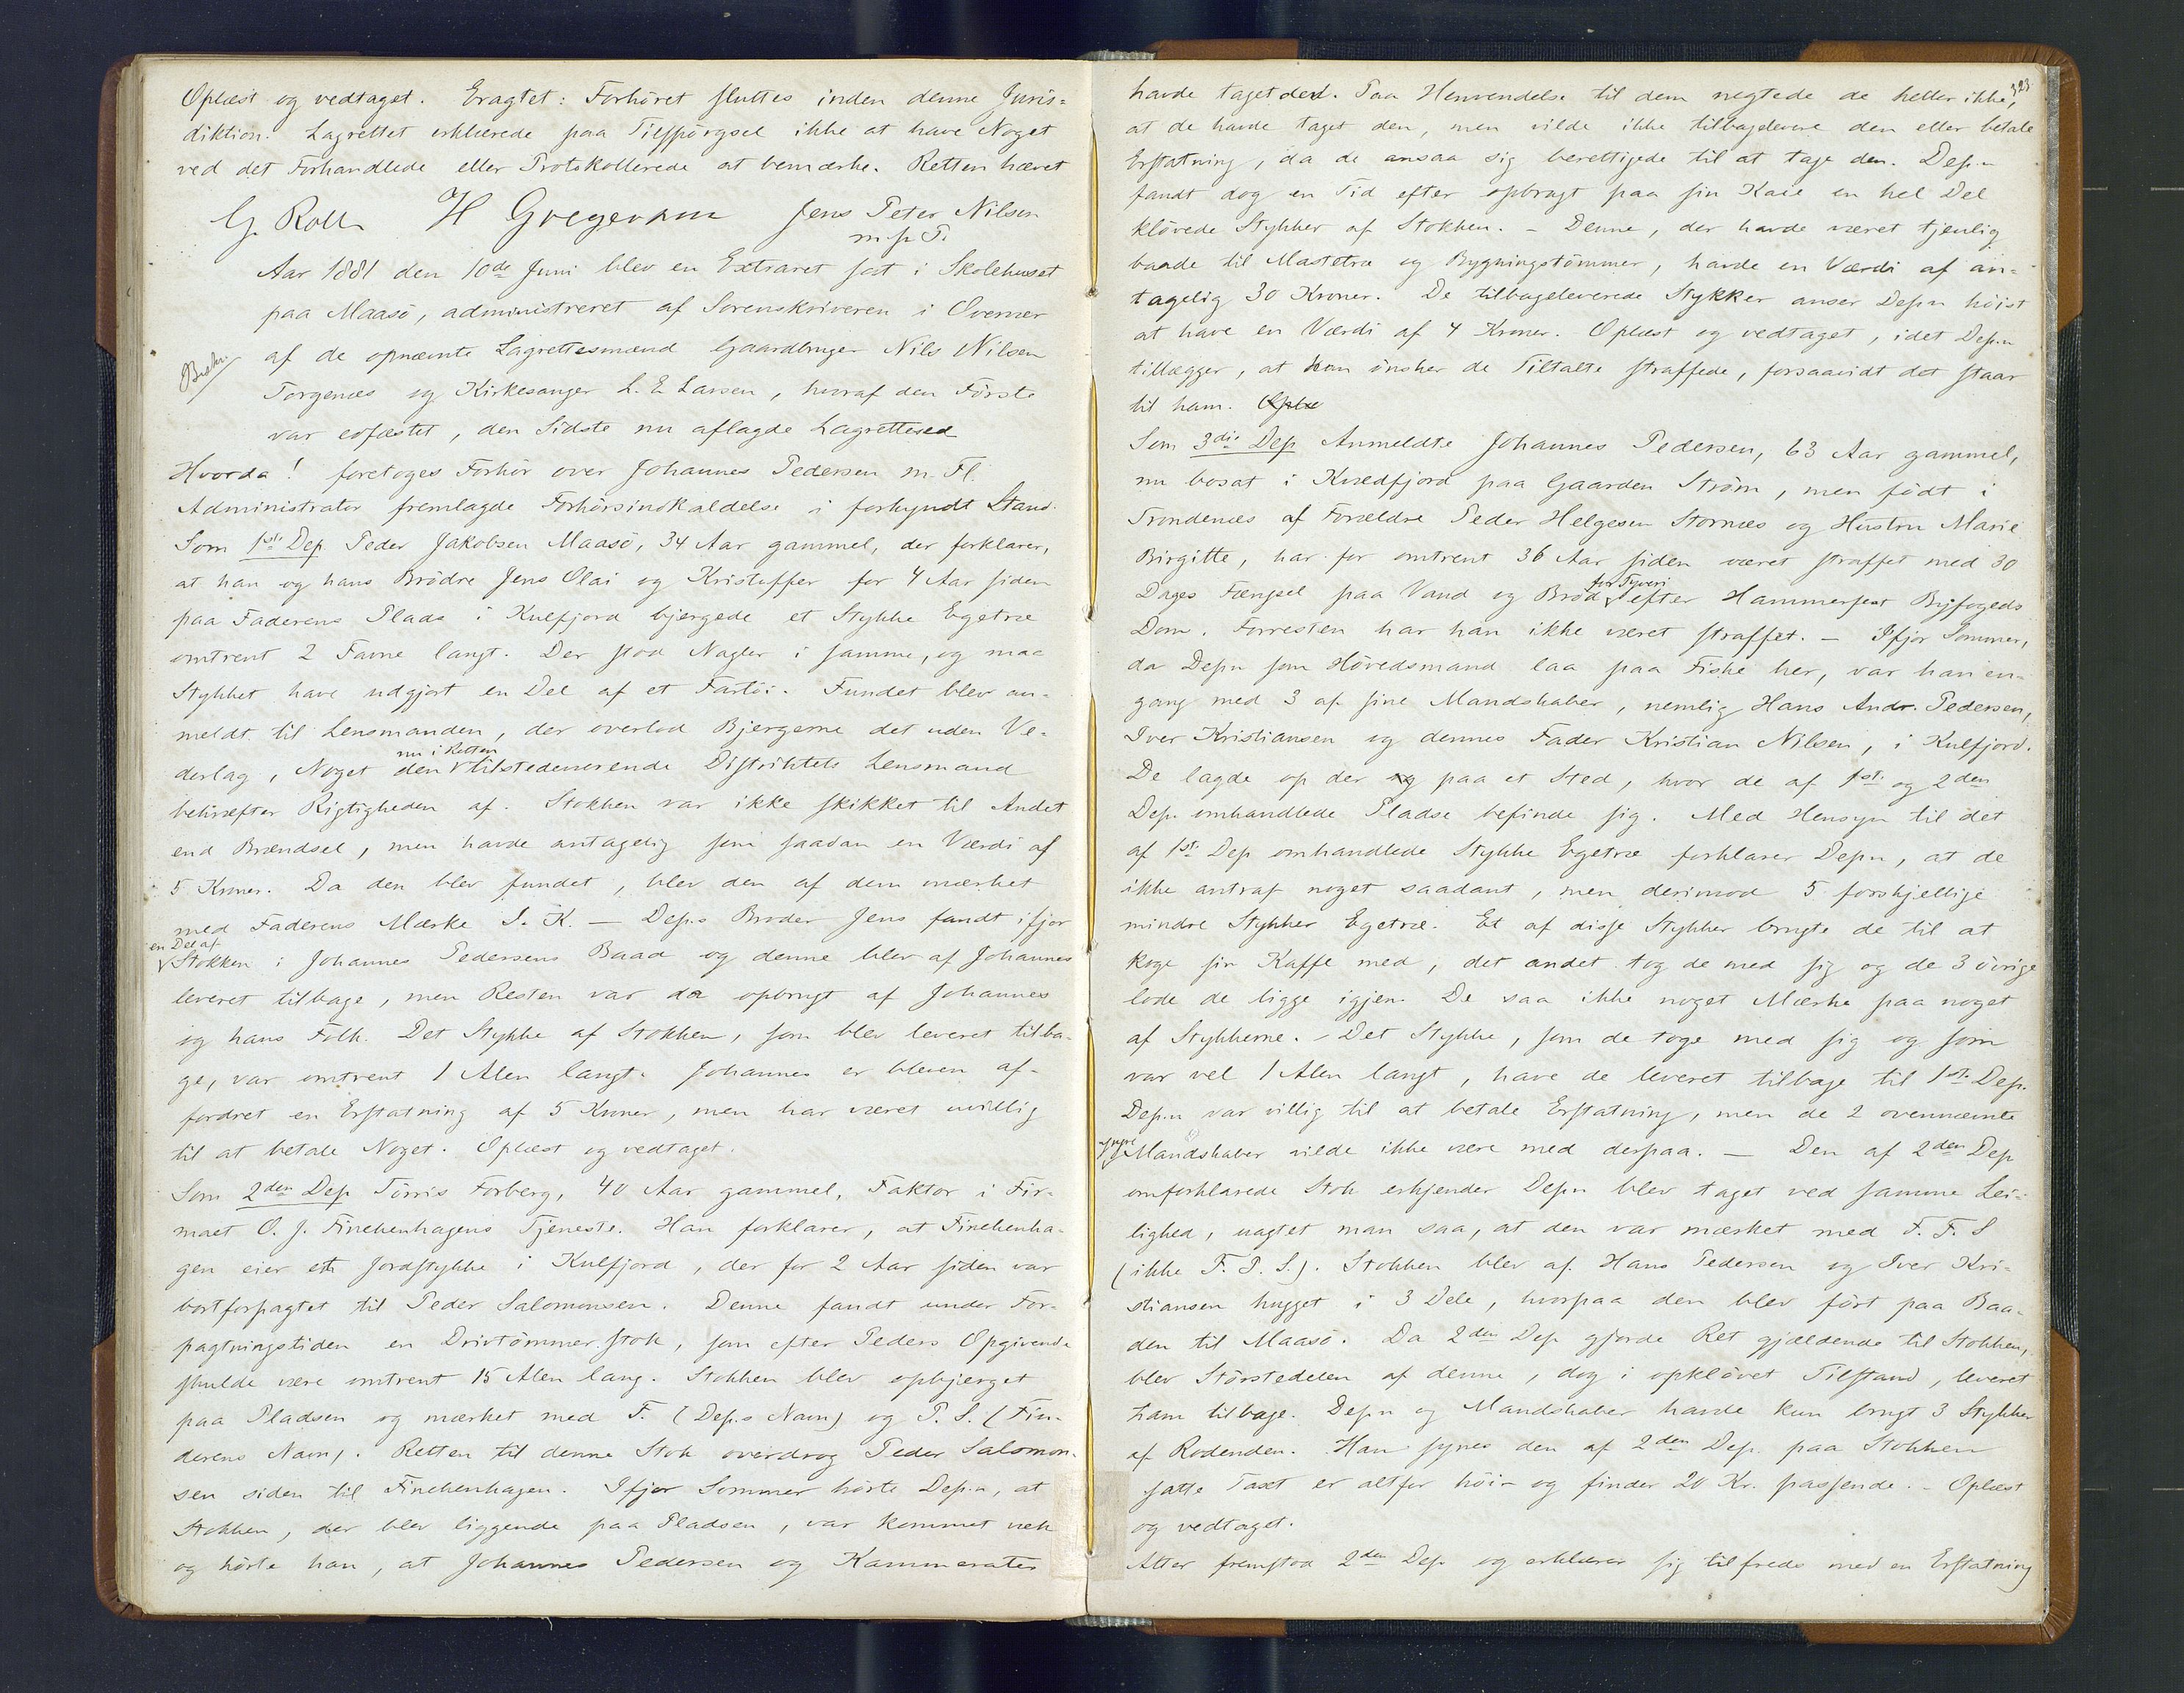 Oplæst og vedtaget. Eragtet: Forhöret sluttes inden denne Juris-
diktion. Lagrettet erklærede paa Tilspörgsel ikke at have Noget
ved det Forhandlede eller Protokollerede at bemærke. Retten hævet
G. Roll H Gregersen Jens Peter Nilsen
m. p. P.
Aar 1881 den 10de Juni blev en Extraret sat i Skolehuset
paa Maasö, administreret af Sorenskriveren i Overvær
af de opnævnte Lagrettesmænd Gaardbruger Nils Nilsen
Torgenæs og Kirkesanger L. E. Larsen, hvoraf den Förste
var edfæstet, den Sidste nu aflagde Lagrettesed
Beskr
Hvorda! foretoges Forhör over Johannes Pedersen m. Fl.
Administrator fremlagde Forhörsindkaldelse i forkyndt Stand.
Som 1ste Dep. Peder Jakobsen Maasö, 34 Aar gammel, der forklarer,
at han og hans Brödre Jens Olai og Kristoffer for 4 Aar siden
paa Faderens Plads i Kulfjord bjergede et Stykke Egetræ
omtrent 2 Favne langt. Der stod Nagler i samme, og maa
Stykket have udgjort en Del af et Fartöi. Fundet blev an-
meldt til Lensmanden, der overlod Bjergerne det uden Ve-
derlag, Noget den nu i Retten tilstedeværende Distriktets Lensmand
bekræfter Rigtigheden af. Stokken var ikke skikket til Andet
end Brændsel, men havde antagelig som saadan en Værdi af
5 Kroner. Da den blev fundet, blev den af dem mærket
med Faderens Mærke S. K. — Dep.s Broder Jens fandt ifjor
en Del af Stokken i Johannes Pedersens Baad og denne blev af Johannes
leveret tilbage, men Resten var da opbrugt af Johannes
og hans Folk. Det Stykke af Stokken, som blev leveret tilba-
ge, var omtrent 1 Alen langt. Johannes er bleven af-
fordret en Erstatning af 5 Kroner, men har været uvillig
til at betale Noget. Oplæst og vedtaget.
Som 2den Dep Törris Forberg, 40 Aar gammel, Faktor i Fir-
maet O. J. Finckenhagens Tjeneste. Han forklarer, at Finckenha-
gen eier et Jordstykke i Kulfjord, der for 2 Aar siden var
bortforpagtet til Peder Salomonsen. Denne fandt under For-
pagtningstiden en Drivtömmerstok, som efter Peders Opgivende
skulde være omtrent 15 Alen lang. Stokken blev opbjerget
paa Pladsen og mærket med F. (Dep.s Navn) og P. S. (Fin-
derens Navn). Retten til denne Stok overdrog Peder Salomon-
sen siden til Finckenhagen. Ifjor Sommer hörte Dep.n, at
Stokken, der blev liggende paa Pladsen, var kommet væk
og hörte han, at Johannes Pedersen og Kammerater
323
havde taget den. Paa Henvendelse til dem negtede de heller ikke,
at de havde taget den, men vilde ikke tilbagelevere den eller betale
Erstatning, da de ansaa sig berettigede til at tage den. Dep.n
fandt dog en Tid efter opbragt paa sin Kaie en hel Del
klövede Stykker af Stokken. – Denne, der havde været tjenlig
baade til Mastetræ og Bygningstömmer, havde en Værdi af an-
tagelig 30 Kroner. De tilbageleverede Stykker anser Dep.n höist
at have en Værdi af 4 Kroner. Oplæst og vedtaget, idet Dep.n
tillægger, at han önsker de Tiltalte straffede, forsaavidt det staar
til ham. Oplæ
Som 3die Dep Anmeldte Johannes Pedersen, 63 Aar gammel,
nu bosat i Kvædfjord paa Gaarden Ström, men födt i
Trondenæs af Forældre Peder Helgesen Stornæs og Hustru Marie
Birgitte, har for omtrent 36 Aar siden været straffet med 30
Dages Fængsel paa Vand og Bröd for Tyveri efter Hammerfest Byfogeds
Dom. Forresten har han ikke været straffet. — Ifjor Sommer,
da Depn som Hövedsmand laa paa Fiske her, var han en-
gang med 3 af sine Mandskaber, nemlig Hans Andr. Pedersen,
Iver Kristiansen og dennes Fader Kristian Nilsen, i Kulfjord.
De lagde op der og paa et Sted, hvor de af 1ste og 2den
Dep. omhandlede Pladse befinde sig. Med Hensyn til det
af 1ste Dep omhandlede Stykke Egetræ forklarer Depn, at de
ikke antraf noget saadant, men derimod 5 forskjellige
mindre Stykker Egetræ. Et af disse Stykker brugte de til at
koge sin Kaffe med, det andet tog de med sig og de 3 övrige
lode de ligge igjen. De saa ikke noget Mærke paa noget
af Stykkerne. – Det Stykke, som de toge med sig og som
var vel 1 Alen langt, have de leveret tilbage til 1ste Dep.
Dep.n var villig til at betale Erstatning, men de 2 ovennævnte
Mandskaber vilde ikke være med derpaa. — Den af 2den Dep
omforklarede Stok erkjender Depn blev taget ved samme Lei-
lighed, uagtet man saa, at den var mærket med F. F. S
(ikke F. P. S.). Stokken blev af Hans Pedersen og Iver Kri-
stiansen hugget i 3 Dele, hvorpaa den blev fört paa Baa-
den til Maasö. Da 2den Dep gjorde Ret gjældende til Stokken,
blev Störstedelen af denne, dog i opklövet Tilstand, leveret
ham tilbage. Dep.n og Mandskaber havde kun brugt 3 Stykker
af Rodenden. Han synes den af 2den Dep. paa Stokken
satte Taxt er altfor höi – og finder 20 Kr. passende. – Oplæst
og vedtaget.
Atter fremstod 2den Dep og erklærer sig tilfreds med en Erstatning